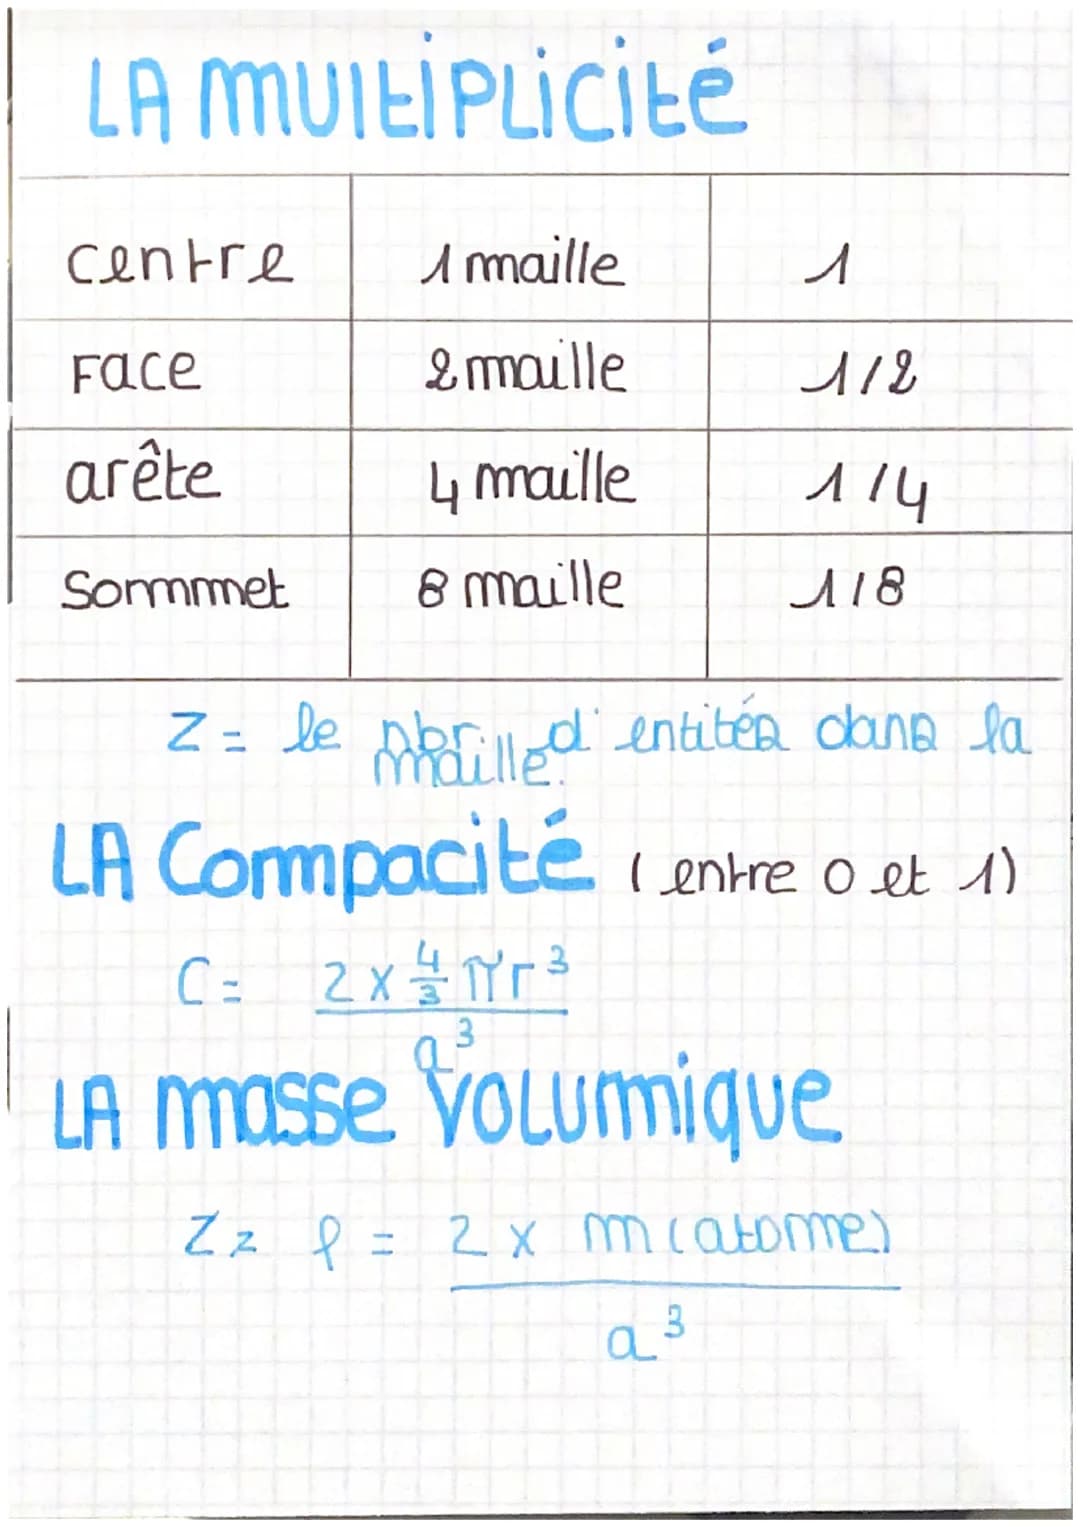 LA MULTIPLICITÉ
centre 1 maille 1
Face 2 maille 1/2
arête 4 maille 1/4
Sommet 8 maille 1/8
Z = le nbr d'entités dans la
maille.
LA Compacité (entre 0 et 1)
C = 2 x 4/3 πr³
a³
LA masse VOLUMIQUE
Z z ρ = 2 x m(atome)
a³